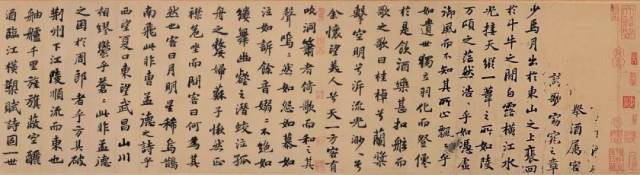 舉酒屬客
誦窈窕之章
少焉月出於東山之上裴回
於斗牛之間白露橫江水
光接天縱一葦之所如陵
萬頃之茫然浩浩乎如馮虛
御風而不知其所止飄飄乎
如遺世獨立羽化而登僊
於是飲酒樂甚扣舷而
歌之歌曰桂棹兮蘭槳
擊空明兮泝流光渺渺兮
余懷望美人兮天一方客有
吹洞簫者倚歌而和之其
聲嗚嗚然如怨如慕如
泣如訴餘音嫋嫋不絕如
縷舞幽壑之潛蛟泣孤
舟之嫠婦蘇子愀然正
襟危坐而問客曰何為其
然也客曰月明星稀烏鵲
南飛此非曹孟德之詩乎
西望夏口東望武昌山川
相繆鬱乎蒼蒼此非孟德
之困於周郎者乎方其破
荊州下江陵順流而東也
舳艫千里旌旗蔽空釃
酒臨江橫槊賦詩固一世